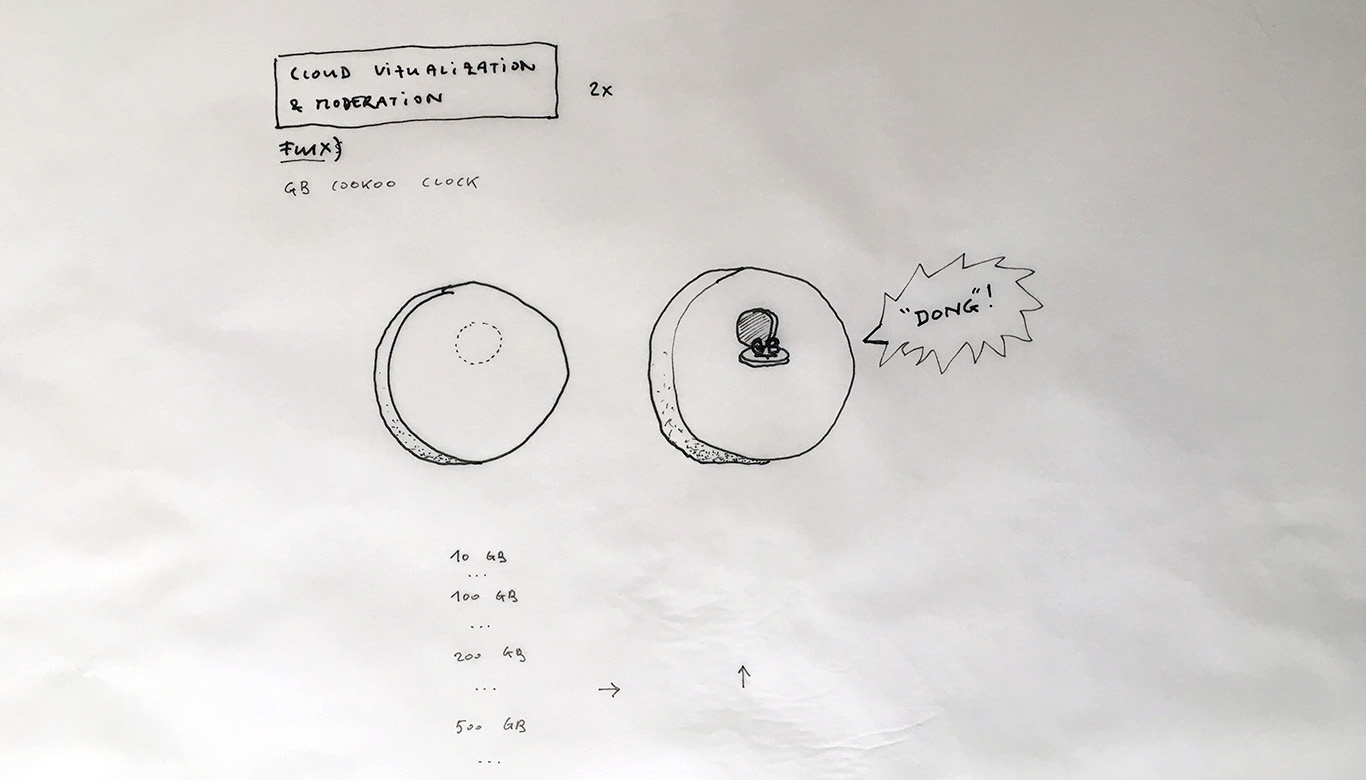 CLOUD VIZUALIZATION
& MODERATION
2x
GB COOKOO CLOCK
"DONG"!
GB
10 GB
...
100 GB
...
200 GB
...
→
↑
500 GB
...